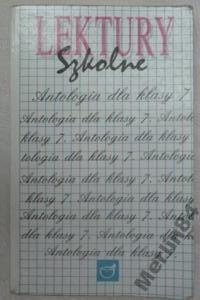 LEKTURY
Szkolne
Antologia dla klasy 7
Antologia dla klasy 7. Antolo
klasy 7. Antologia dla klasy
tologia dla klasy 7. Antologia
Antologia dla klasy 7. Antolo
klasy 7. Antologia dla klasy
Antologia dla klasy 7. Antolo
dla klasy 7. Antologia dla
Antologia dla klasy
Merlin84